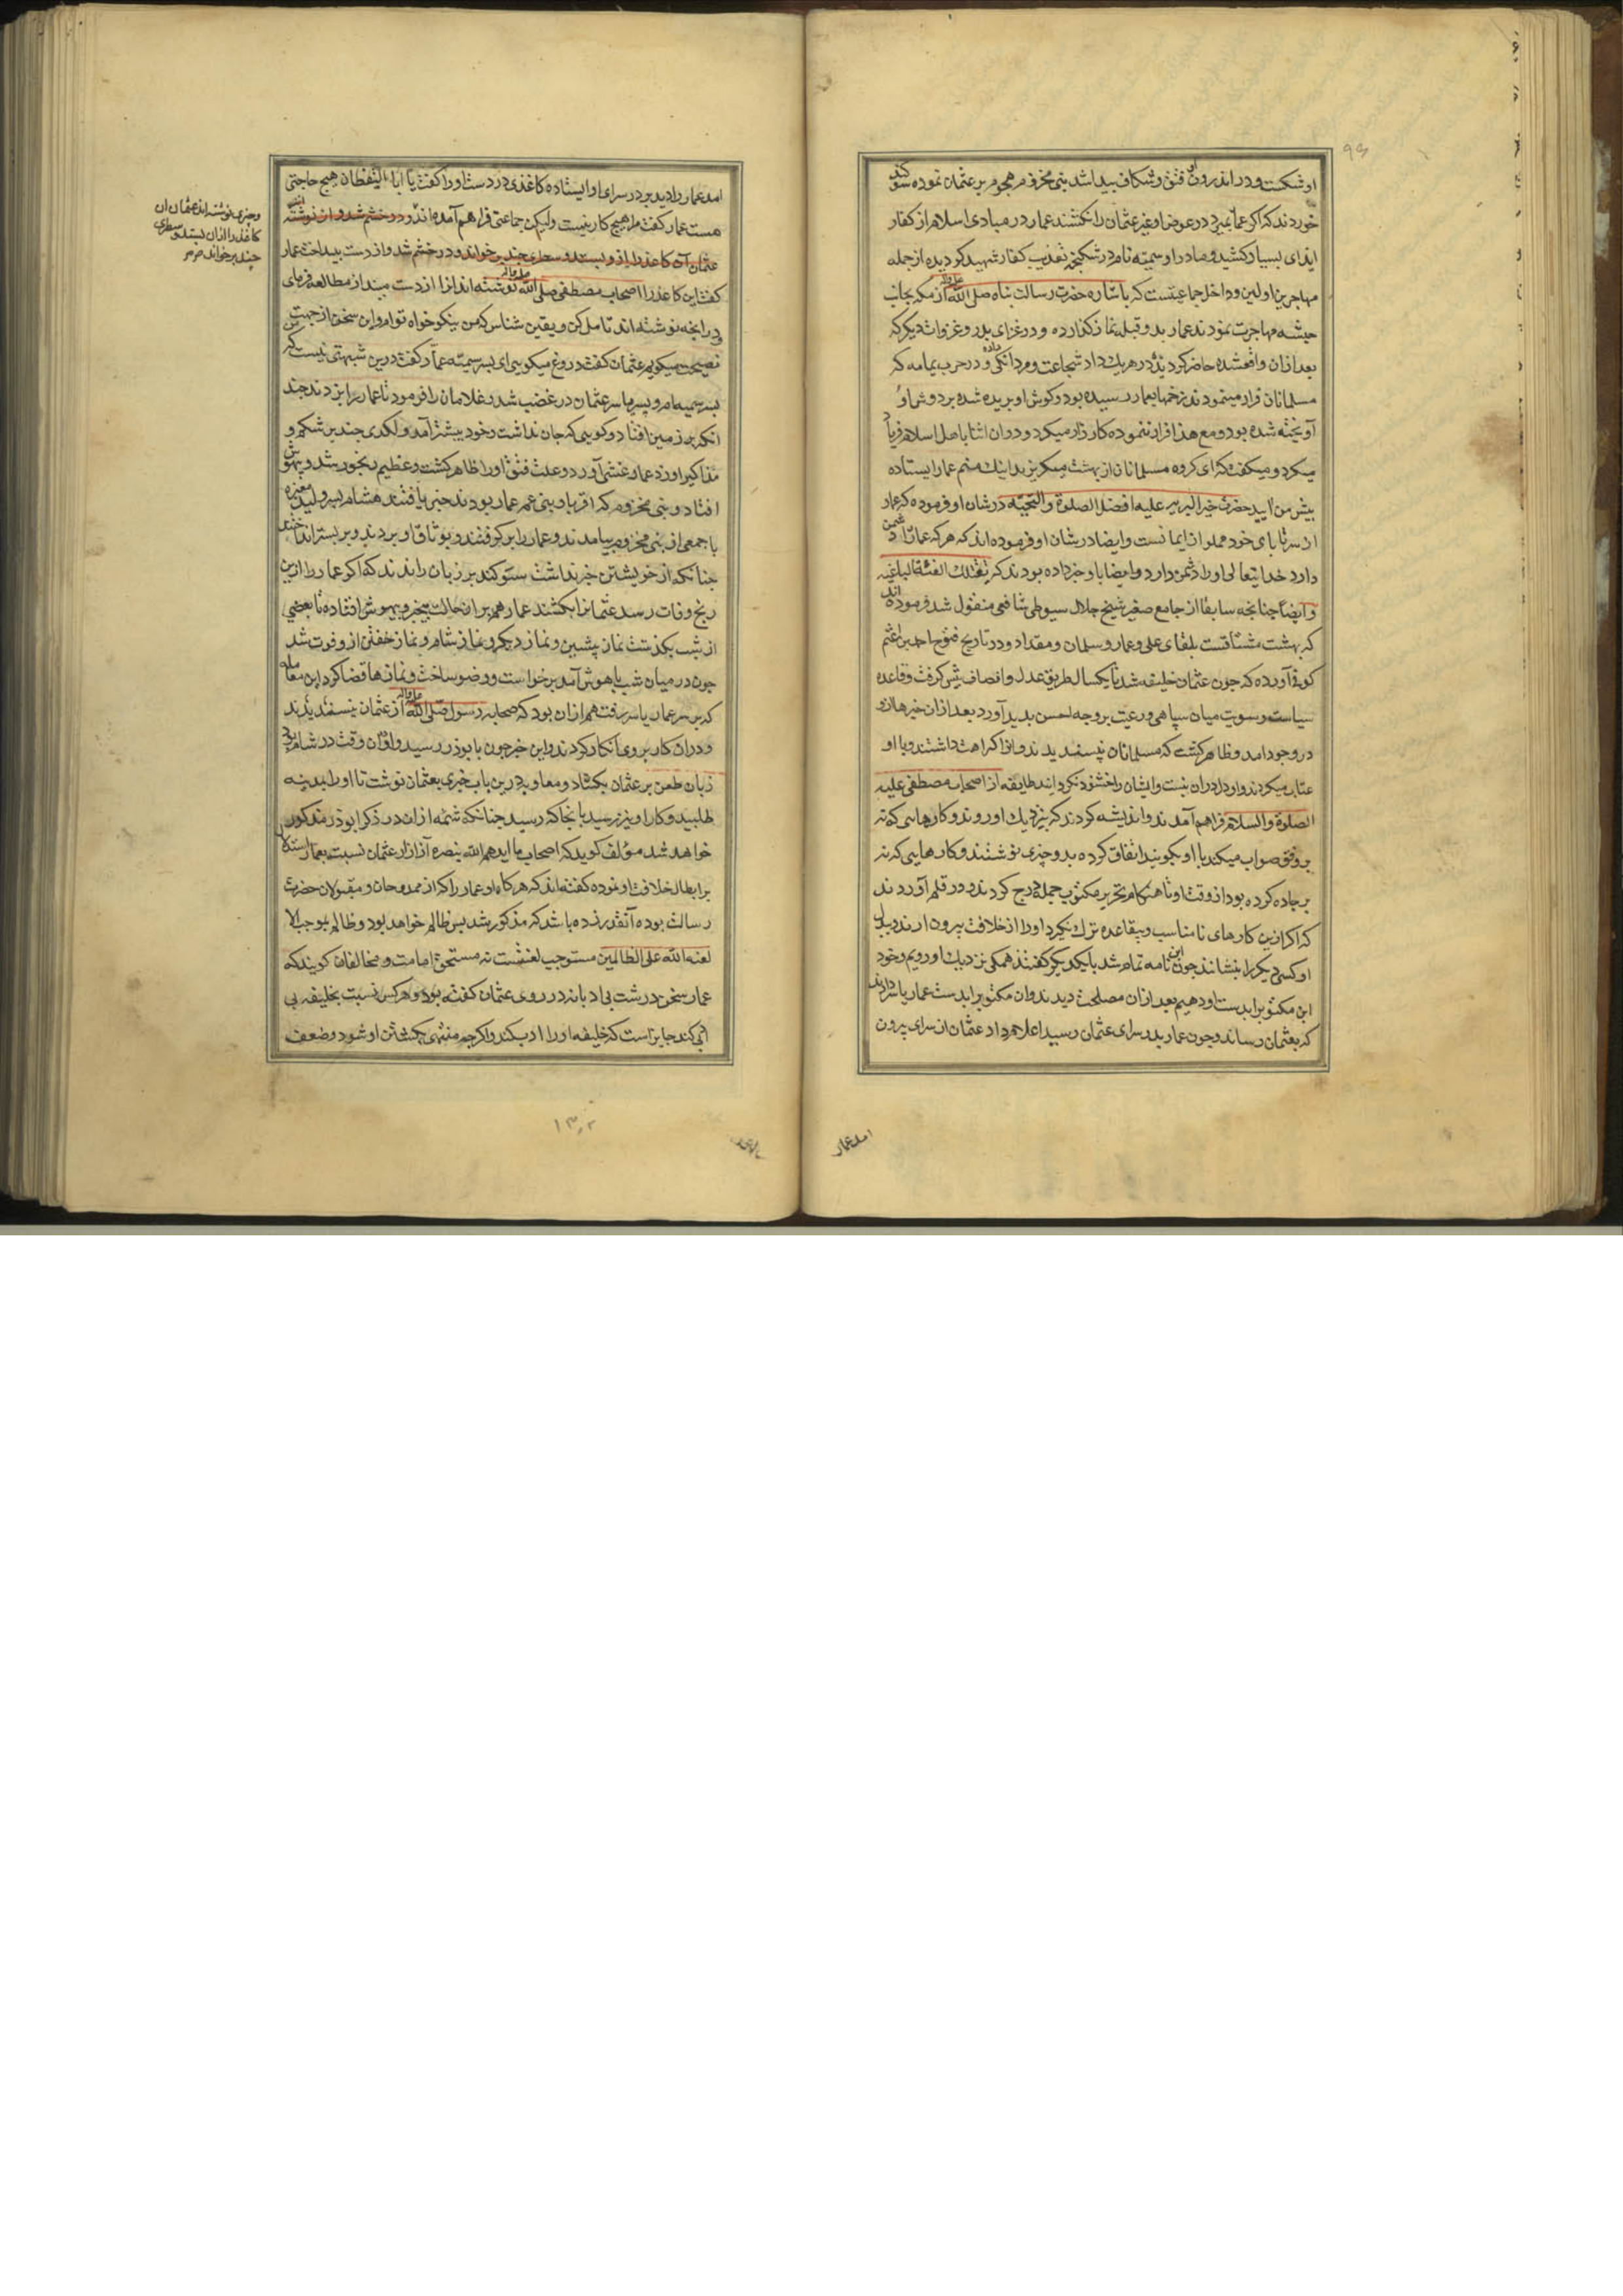 او شکست و در اندرون او فتق و شکاف پیدا شد بنی مخزوم هجوم بر عثمان نموده سوکند
خوردند که اکر عمار بمیرد در عوض او غیر عثمان را نکشند عمار در مبادی اسلام از کفار
ایذای بسیار کشید و مادر او سمیه نام در شکنجه تعذیب کفار شهید کردیده از جمله
مهاجرین اولین و داخل جماعیتست که باشاره حضرت رسالت پناه صلی الله علیه واله از مکه بجانب
حبشه مهاجرت نمودند عمار بدو قبله نماز کذارده و در غزای بدر و غزوات دیکر که
بعد ازان واقع شده حاضر کردیده در هر یک داد شجاعت و مردانکی داده و در حرب یمامه که
مسلمانان فرار مینمودند زخمها بعمار رسیده بود و کوش او بریده شده بر دوش او
آویخته شده بود و مع هذا فرار ننموده کارزار میکرد و دران اثنا باهل اسلام فریاد
میکرد و میکفت که ای کروه مسلمانان از بهشت میکریزید اینک منم عمار ایستاده
پیش من ایید حضرت خیر البریه علیه افضل الصلوة والتحیه در شان او فرموده که عمار
از سر تا پای خود مملو از ایمانست و ایضا در شان او فرموده اند که هر که عمار را دشمن
دارد خدایتعالی او را دشمن دارد و ایضا باو خبر داده بودند که یقتلک الفئة الباغیه
و ایضا چنانچه سابقا از جامع صغیر شیخ جلال سیوطی شافعی منقول شد فرموده اند
که بهشت مشتاقست بلقای علی و عمار و سلمان و مقداد و در تاریخ فتوح احمد بن اعثم
کوفی آورده که چون عثمان خلیفه شد تا یکسال طریق عدل و انصاف پیش کرفت و قاعده
سیاست و سویت میان سپاهی و رعیت بر وجه احسن بدید آورد بعد ازان خبرها ازو
در وجود امد و ظاهر کشت که مسلمانان نپسندیدند و انرا کراهت داشتند و با او
عتاب میکردند و او دل دران نبست و ایشان را خشنود نکردانید طایفه از اصحاب مصطفی علیه
الصلوة والسلام فراهم آمدند و اندیشه کردند که بنزدیک او روند و کارهایی که نه
بر وفق صواب میکند با او بکویند اتفاق کرده بدو چیزی نوشتند و کارهایی که نه
بر جاده کرده بود از وقت او تا هنکام تحریر مکتوب جمله درج کردند و در قلم آوردند
که اکر ازین کارهای نامناسب و بیقاعده ترک نکیرد او را از خلافت بیرون ارند و بدل
او کسی دیکر را بنشانند چون این نامه تمام شد با یکدیکر کفتند همکی نزدیک او رویم و خود
این مکتوب را بدست او دهیم بعد ازان مصلحت دیدند و ان مکتوب را بدست عمار یاسر دادند
که بعثمان رساند و چون عمار بدر سرای عثمان رسید اعلام داد عثمان از سرای بیرون
امد عمار
امد عمار را دید بر در سرای او ایستاده کاغذی در دست او را کفت یا ابا الیقظان هیچ حاجتی
هست عمار کفت مرا هیچ کار نیست ولیکن جماعتی فراهم آمده اند و در خشم شد و از نوشته
عثمان آن کاغذ را ازو بستد و سطری چند بر خواند و در خشم شد و از دست بینداخت عمار
کفت این کاغذ را اصحاب مصطفی صلی الله علیه واله نوشته اند انرا از دست مینداز مطالعه فرمای
در انچه نوشته اند تامل کن و یقین شناس که من نیکو خواه توام و این سخن از جهت
نصیحت میکویم عثمان کفت دروغ میکویی ای پسر سمیه عمار کفت درین شبهتی نیست که
پسر سمیه ام و پسر یاسر عثمان در غضب شد و غلامان را فرمود تا عمار را بزدند چند
انکه بر زمین افتاد و کویی که جان نداشت و خود پیشتر آمد و لکدی چند بر شکم و
مذاکیر او زد عمار غشی آورد و علت فتق او را ظاهر کشت و عظیم رنجور شد و بیهوش
افتاد و بنی مخزوم که اقربا و بنی عم عمار بودند خبر یافتند هشام بن ولید مغیره
با جمعی از بنی مخزوم بیامدند و عمار را بر کرفتند و بوثاق او بردند و بر بستر انداختند
چنانکه از خویشتن خبر نداشت سوکند بر زبان راندند که اکر عمار را ازین
رنج وفات رسد عثمانرا بکشند عمار هم بران حالت بیخبر و بیهوش افتاده تا بعضی
از شب بکذشت نماز پیشین و نماز دیکر و نماز شام و نماز خفتن ازو فوت شد
چون در میان شب باهوش آمد برخواست و وضو ساخت و نمازها قضا کرد این معامله
که بر سر عمار یاسر رفت هم ازان بود که صحابه رسول صلی الله علیه واله از عثمان نپسندیدند
و دران کار بر وی انکار کردند و این خبر چون بابوذر رسید و او ان وقت در شام بود
زبان طعن بر عثمان بکشاد و معاویه درین باب خبری بعثمان نوشت تا او را بمدینه
طلبید و کار او نیز رسید بانجا که رسید چنانکه شمه ازان در ذکر ابوذر مذکور
خواهد شد مؤلف کوید که اصحاب ما ایدهم الله بنصره آزار عثمان نسبت بعمار استدلال
بر ابطال خلافت او نموده کفته اند که هر کاه او عمار را که از ممدوحان و مقبولان حضرت
رسالت بوده آنقدر زده باشد که مذکور شد پس ظالم خواهد بود و ظالم بموجب الا
لعنة الله علی الظالمین مستوجب لعنتست نه مستحق امامت و مخالفان کویند که
عمار سخن درشت بی ادبانه در روی عثمان کفته بود و هر کس نسبت بخلیفه بی
ادبی کند جایز است که خلیفه او را ادب کند و اکرچه منتهی بکشتن او شود و ضعف
و چیزی نوشته اند عثمان ان
کاغذ را ازان بستد و سطری
چند بر خواند